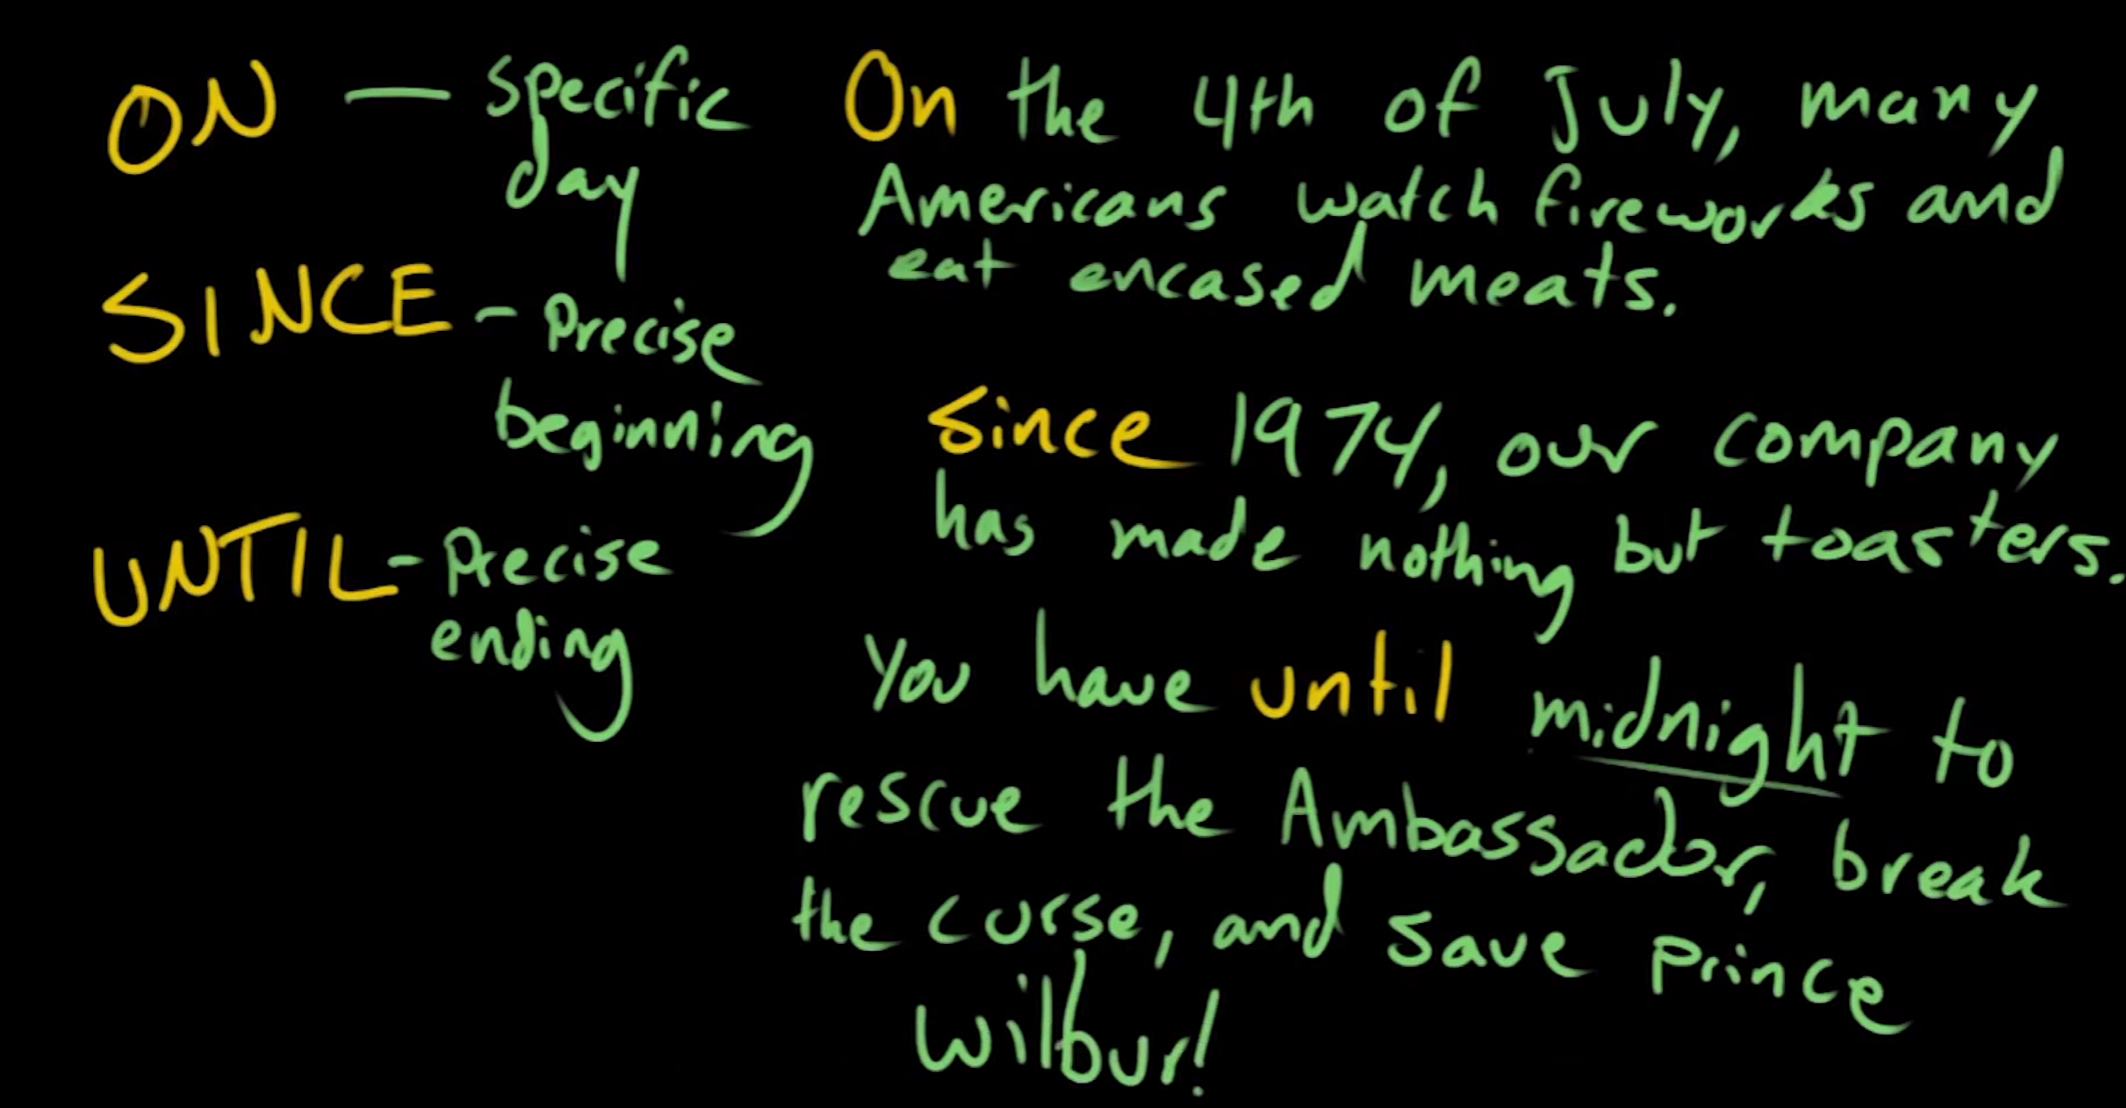 ON — specific
day
SINCE - Precise
beginning
UNTIL - Precise
ending
On the 4th of July, many
Americans watch fireworks and
eat encased meats.
Since 1974, our company
has made nothing but toasters.
You have until midnight to
rescue the Ambassador, break
the curse, and save prince
Wilbur!